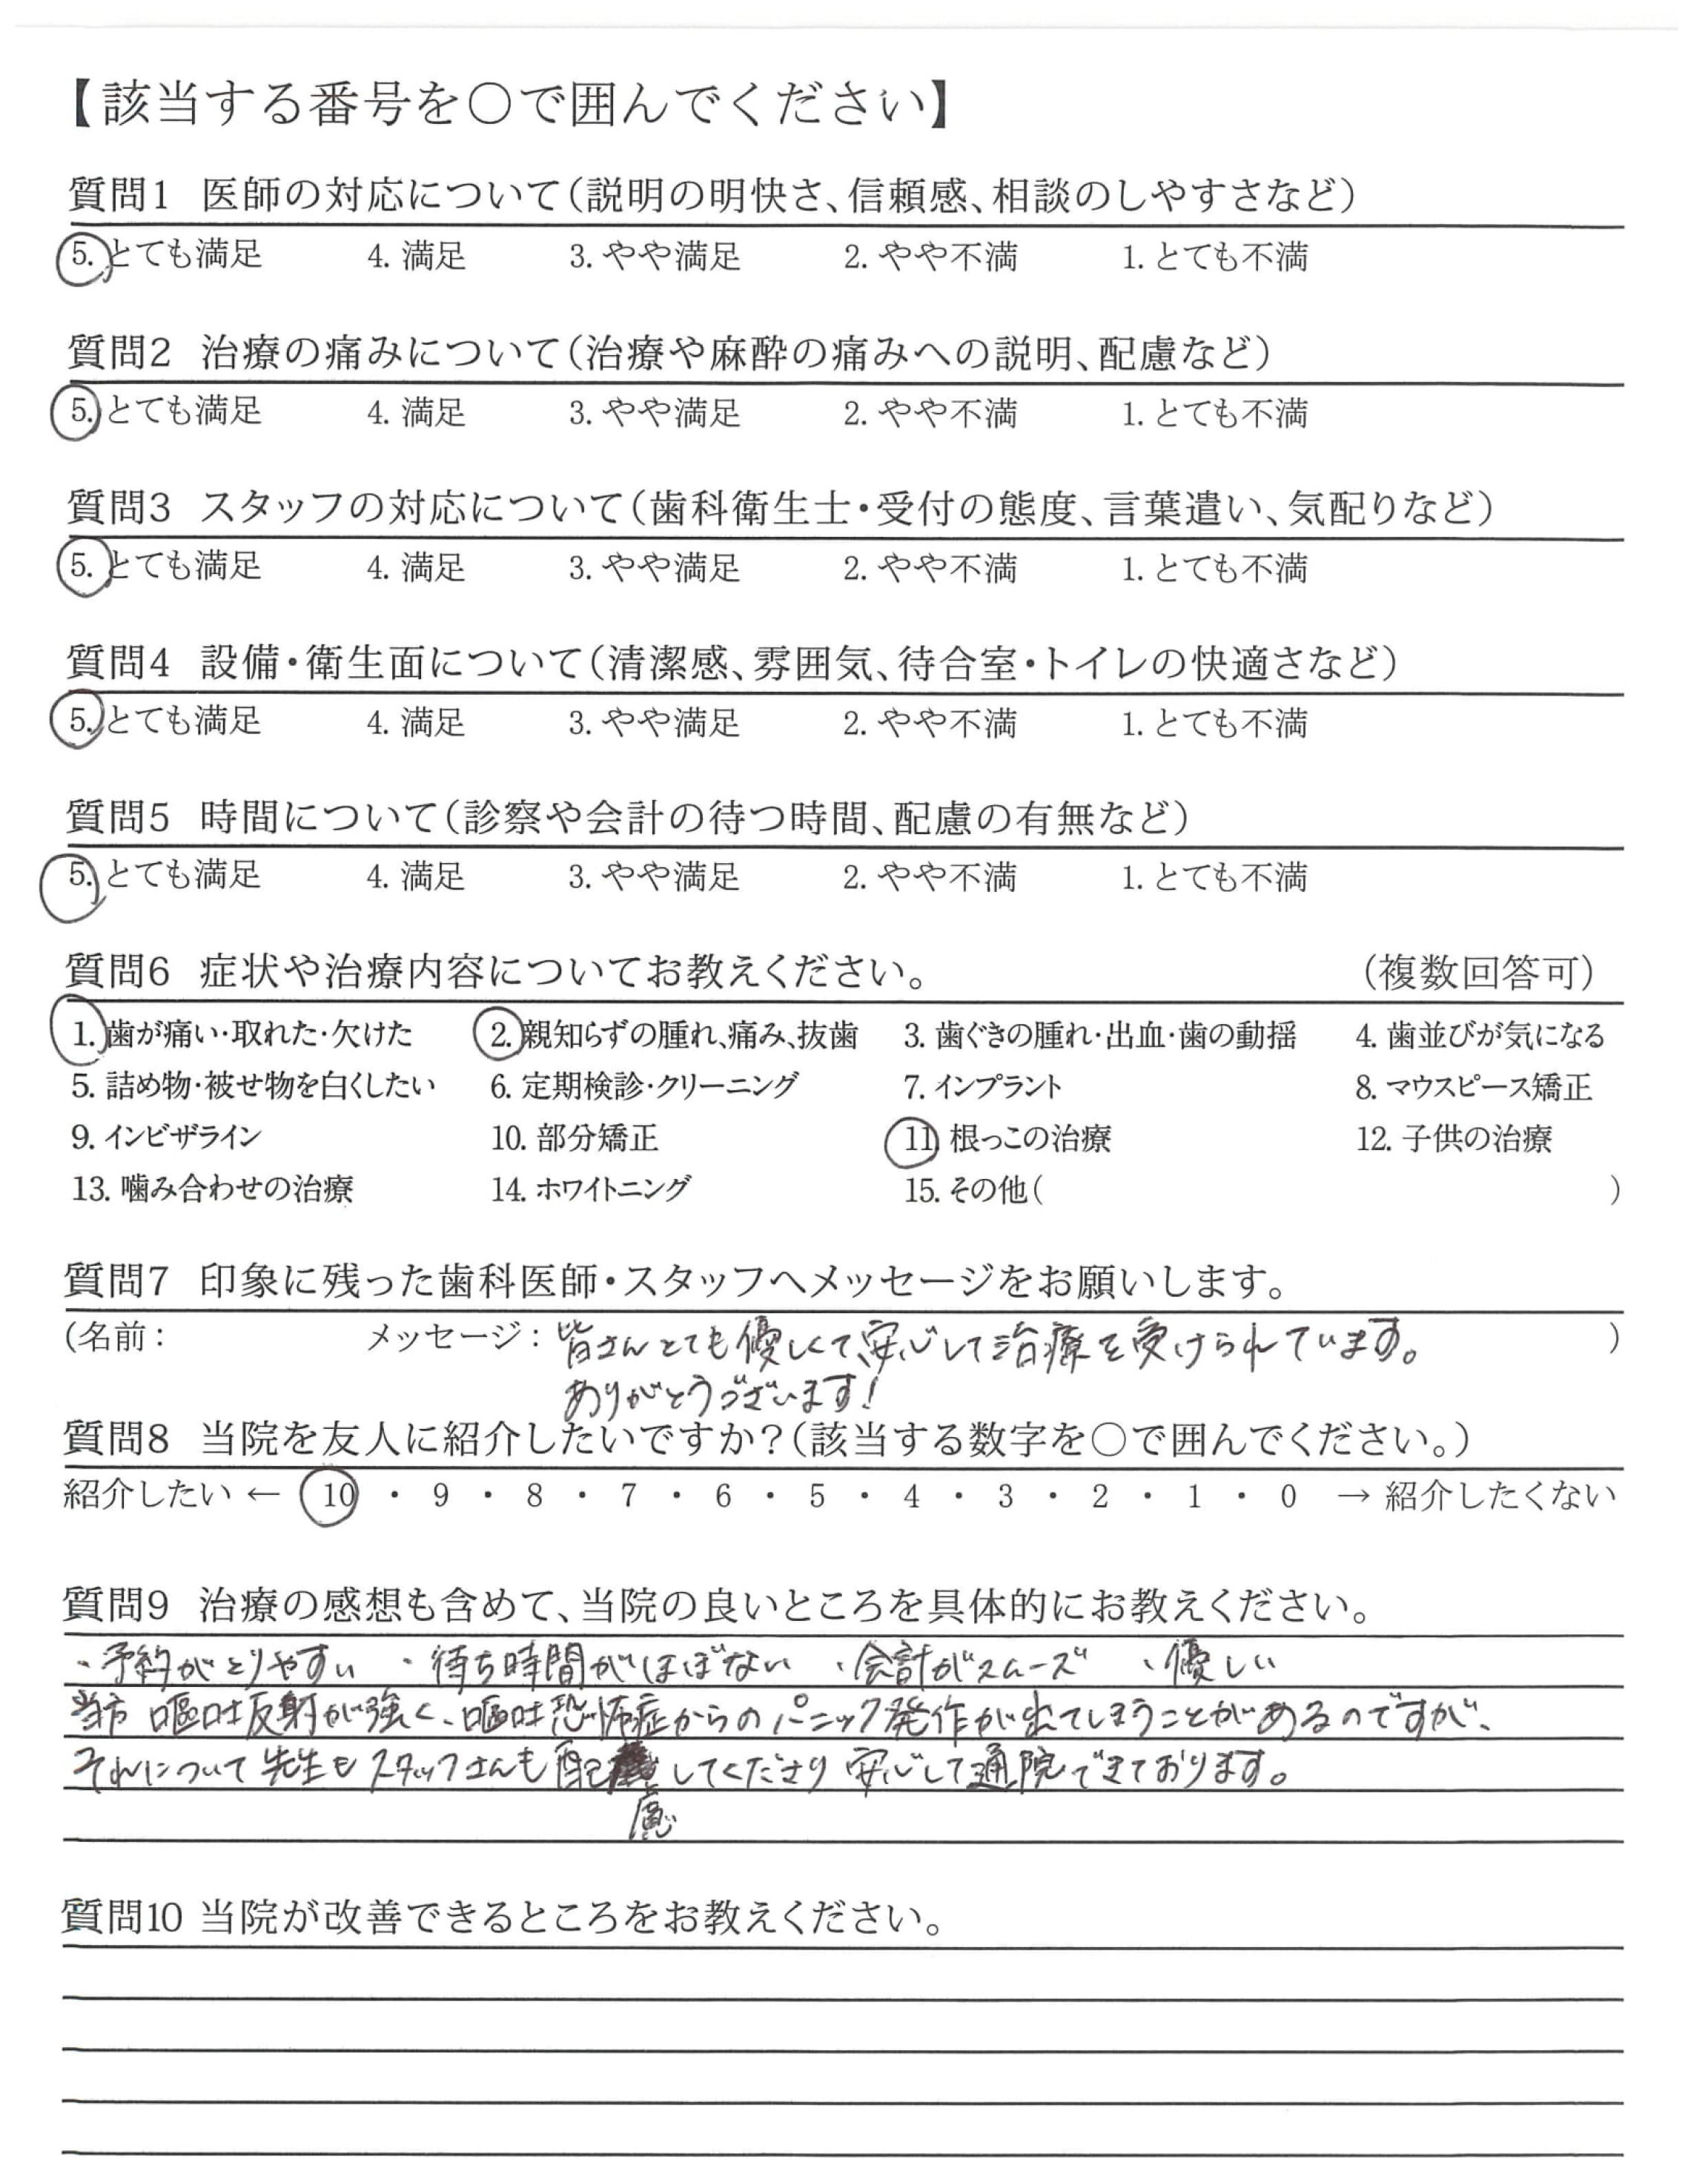 【該当する番号を〇で囲んでください】
質問1 医師の対応について(説明の明快さ、信頼感、相談のしやすさなど)
5. とても満足 4. 満足 3. やや満足 2. やや不満 1. とても不満
質問2 治療の痛みについて(治療や麻酔の痛みへの説明、配慮など)
5. とても満足 4. 満足 3. やや満足 2. やや不満 1. とても不満
質問3 スタッフの対応について(歯科衛生士・受付の態度、言葉遣い、気配りなど)
5. とても満足 4. 満足 3. やや満足 2. やや不満 1. とても不満
質問4 設備・衛生面について(清潔感、雰囲気、待合室・トイレの快適さなど)
5. とても満足 4. 満足 3. やや満足 2. やや不満 1. とても不満
質問5 時間について(診察や会計の待つ時間、配慮の有無など)
5. とても満足 4. 満足 3. やや満足 2. やや不満 1. とても不満
質問6 症状や治療内容についてお教えください。 (複数回答可)
1. 歯が痛い・取れた・欠けた 2. 親知らずの腫れ、痛み、抜歯 3. 歯ぐきの腫れ・出血・歯の動揺 4. 歯並びが気になる
5. 詰め物・被せ物を白くしたい 6. 定期検診・クリーニング 7. インプラント 8. マウスピース矯正
9. インビザライン 10. 部分矯正 11. 根っこの治療 12. 子供の治療
13. 噛み合わせの治療 14. ホワイトニング 15. その他( )
質問7 印象に残った歯科医師・スタッフへメッセージをお願いします。
(名前: メッセージ: 皆さんとても優しくて、安心して治療を受けられています。 )
ありがとうございます!
質問8 当院を友人に紹介したいですか?(該当する数字を〇で囲んでください。)
紹介したい ← 10 ・ 9 ・ 8 ・ 7 ・ 6 ・ 5 ・ 4 ・ 3 ・ 2 ・ 1 ・ 0 → 紹介したくない
質問9 治療の感想も含めて、当院の良いところを具体的にお教えください。
・予約がとりやすい ・待ち時間がほぼない ・会計がスムーズ ・優しい
嘔吐反射が強く、嘔吐恐怖症からのパニック発作が出てしまうことがあるのですが、
それについて先生もスタッフさんも配慮してくださり安心して通院できております。
質問10 当院が改善できるところをお教えください。